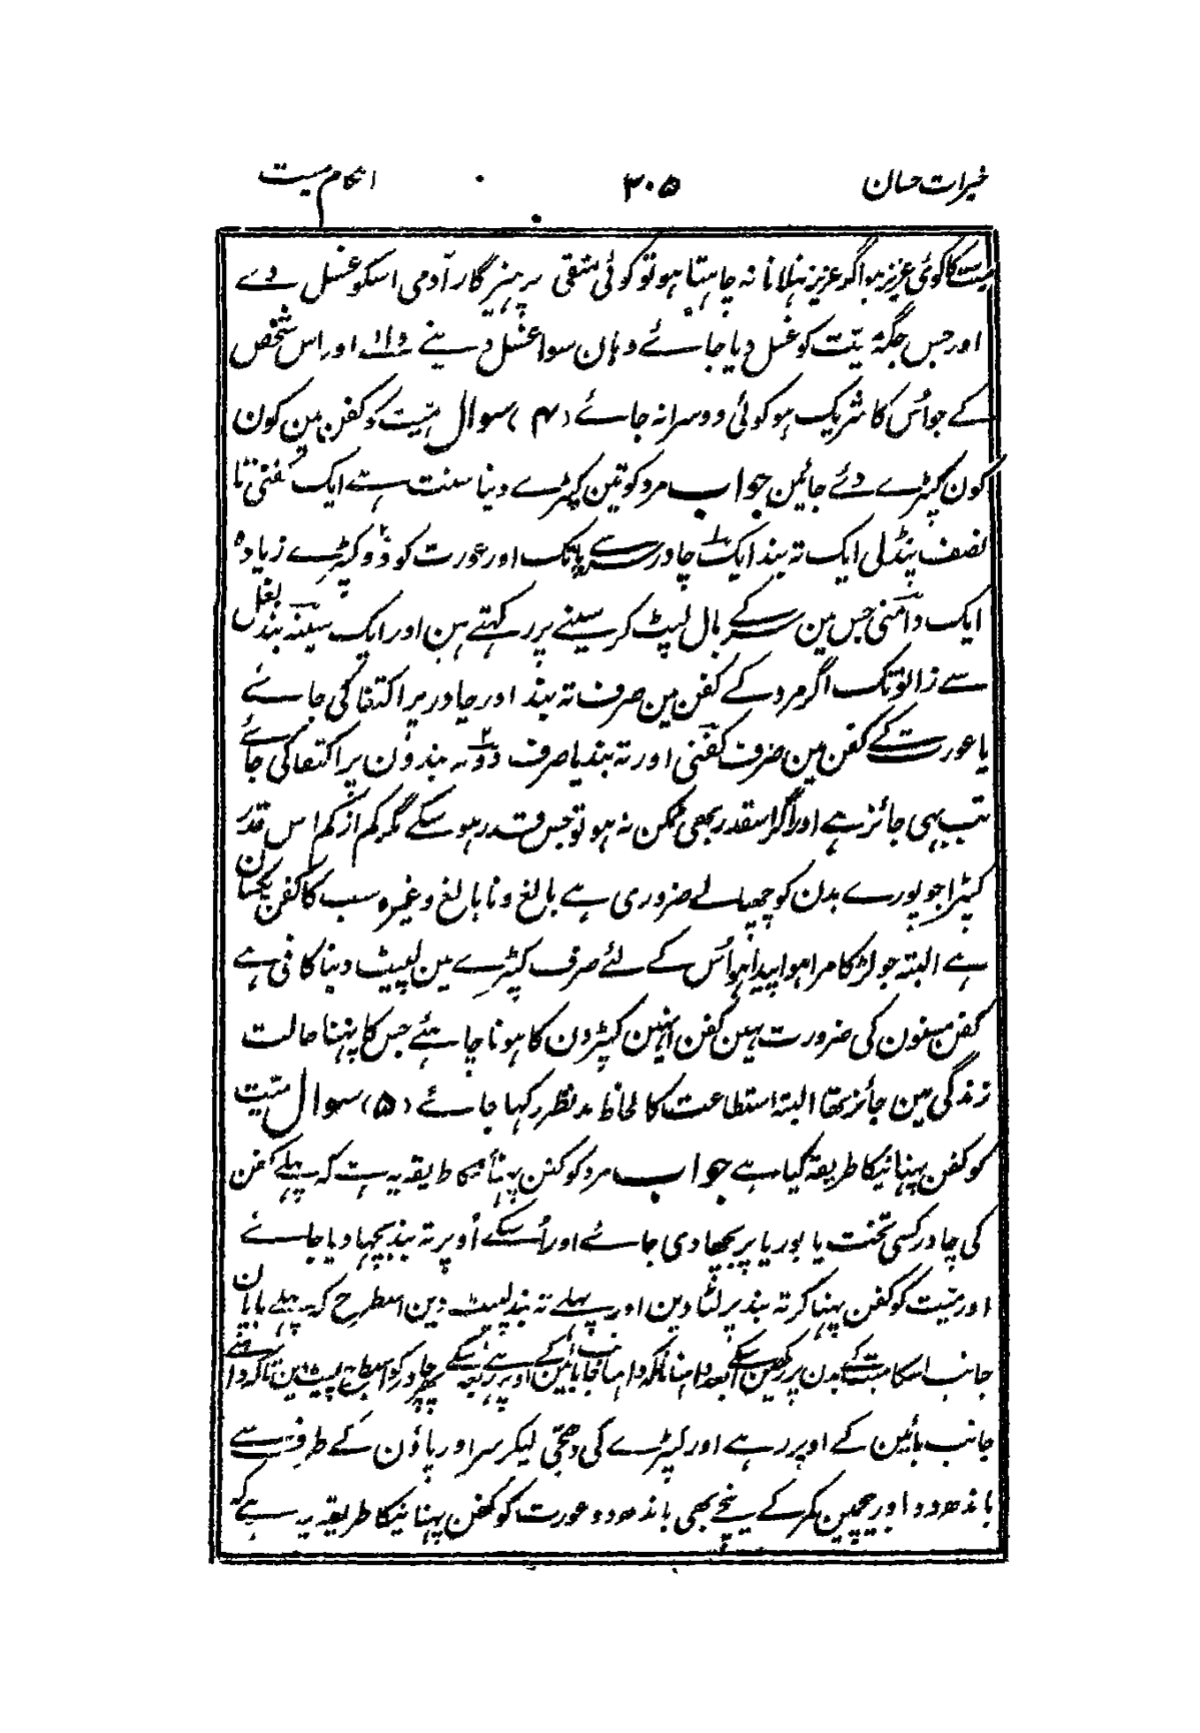 خیرات حسان ۳۰۵ احکام میت
میت کا کوئی عزیز ہو اگر عزیز نہلانا نہ چاہتا ہو تو کوئی متقی پرہیز گار آدمی اسکو غسل دے
اور جس جگہ میّت کو غسل دیا جائے وہان سوا غسل دینے والے اور اس شخص
کے جو اُس کا شریک ہو کوئی دوسرا نہ جائے (۴) سوال میّت کو کفن مین کون
کون کپڑے دئے جائین جواب مرد کو تین کپڑے دینا سنت ہے ایک کفنی تا
نصف پنڈلی ایک تہ بند ایک چادر سر سے پا تک اور عورت کو دُو کپڑے زیادہ
ایک دامنی جس مین سر کے بال لپٹ کر سینے پر رکہتے ہین اور ایک سینہ بند بغل
سے زانو تک اگر مرد کے کفن مین صرف تہ بند اور چادر پر اکتفا کی جائے
یا عورت کے کفن مین صرف کفنی اور تہ بند یا صرف دو تہ بندون پر اکتفا کی جائے
تب بہی جائز ہے اور اگر اسقدر بھی ممکن نہ ہو تو جس قدر ہو سکے مگر کم از کم اس قدر
کپڑا جو پورے بدن کو چھپالے ضروری ہے بالغ و نا بالغ وغیرہ سب کا کفن یکسان
ہے البتہ جو لڑکا مرا ہوا پیدا ہو اُس کے لئے صرف کپڑے مین لپیٹ دینا کافی ہے
کفن مسنون کی ضرورت نہین کفن انہین کپڑون کا ہونا چاہئے جس کا پہننا حالت
زندگی مین جائز تھا البتہ استطاعت کا لحاظ مد نظر رکہا جائے (۵) سوال میّت
کو کفن پہنانیکا طریقہ کیا ہے جواب مرد کو کفن پہنانیکا طریقہ یہ ہے کہ پہلے کفن
کی چادر کسی تخت یا بوریا پر بچھا دی جائے اور اُسکے اُوپر تہ بند بچہا دیا جائے
اور میّت کو کفن پہنا کر تہ بند پر لٹا دین اور پہلے تہ بند لپیٹ دین اسطرح کہ پہلے بایان
جانب اسکا میت کے بدن پر رکھین اسکے بعد داہنا تاکہ داہنا جانب بائین کے اوپر رہے اسکے پھر چادر کو اسطرح لپیٹین تاکہ داہنے
جانب بائین کے اوپر رہے اور کپڑے کی دھجّی لیکر سر اور پاؤن کے طرف سے
باندھ دو اور بیچمین کمر کے نیچے بھی باندھ دو عورت کو کفن پہنانیکا طریقہ یہ ہے کہ